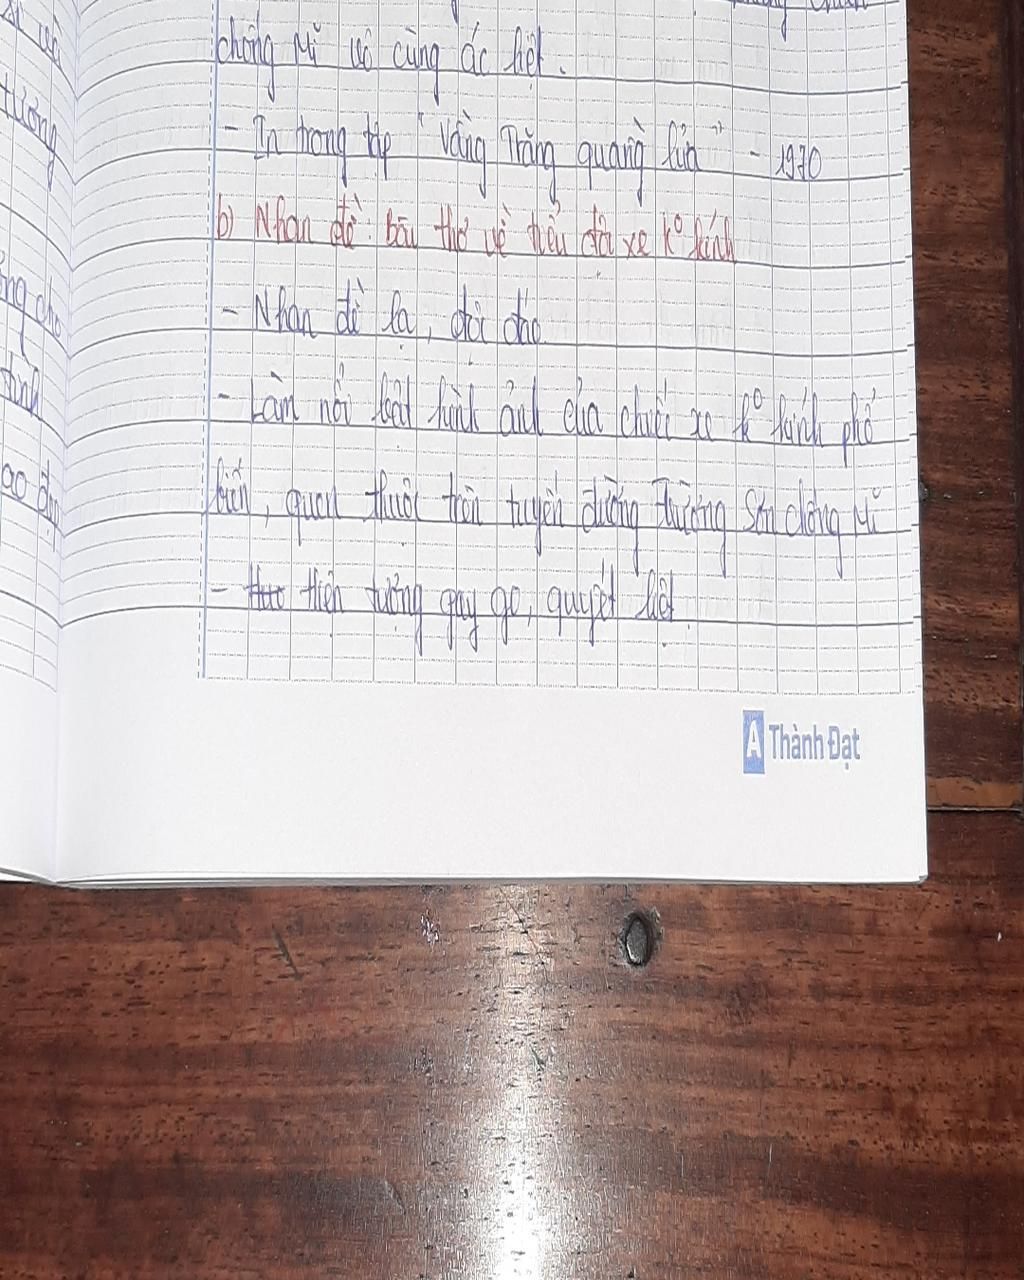 chống Mĩ vô cùng ác liệt.
- In trong tập "Vầng Trăng quầng lửa" - 1970
b) Nhan đề: bài thơ về tiểu đội xe k° kính
- Nhan đề lạ, độc đáo
- Làm nổi bật hình ảnh của chiếc xe k° kính phổ
biến, quen thuộc trên tuyến đường Trường Sơn chống Mĩ
- hiện tượng gay go, quyết liệt.
tượng
ng cho
A Thành Đạt